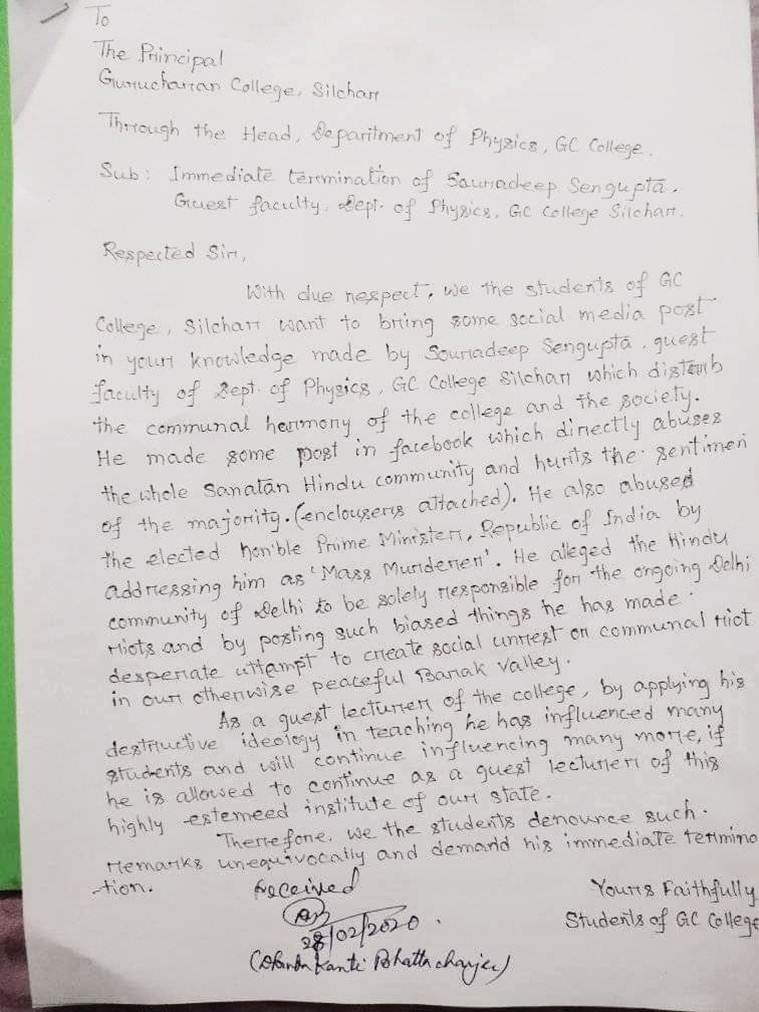 To
The Principal
Gurucharan College, Silchar
Through the Head, Department of Physics, GC College.
Sub: Immediate termination of Souradeep Sengupta.
Guest faculty. Dept. of Physics, GC College Silchar.
Respected Sir,
With due respect, we the students of GC
College, Silchar want to bring some social media post
in your knowledge made by Souradeep Sengupta, guest
faculty of Dept. of Physics, GC College Silchar which disturb
the communal harmony of the college and the society.
He made some post in facebook which directly abuses
the whole Sanatan Hindu community and hurts the sentimen
of the majority. (enclousers attached). He also abused
the elected hon'ble Prime Minister, Republic of India by
addressing him as 'Mass Murderer'. He alleged the Hindu
community of Delhi to be solely responsible for the ongoing Delhi
riots and by posting such biased things he has made
desperate attempt to create social unrest or communal riot
in our otherwise peaceful Barak valley.
As a guest lecturer of the college, by applying his
destructive ideology in teaching he has influenced many
students and will continue influencing many more, if
he is allowed to continue as a guest lecturer of this
highly estemeed institute of our state.
Therefore, we the students denounce such
remarks unequivocally and demand his immediate termina
-tion.
Received
28/02/2020.
Kanti Bhattacharjee)
Yours Faithfully
Students of GC College